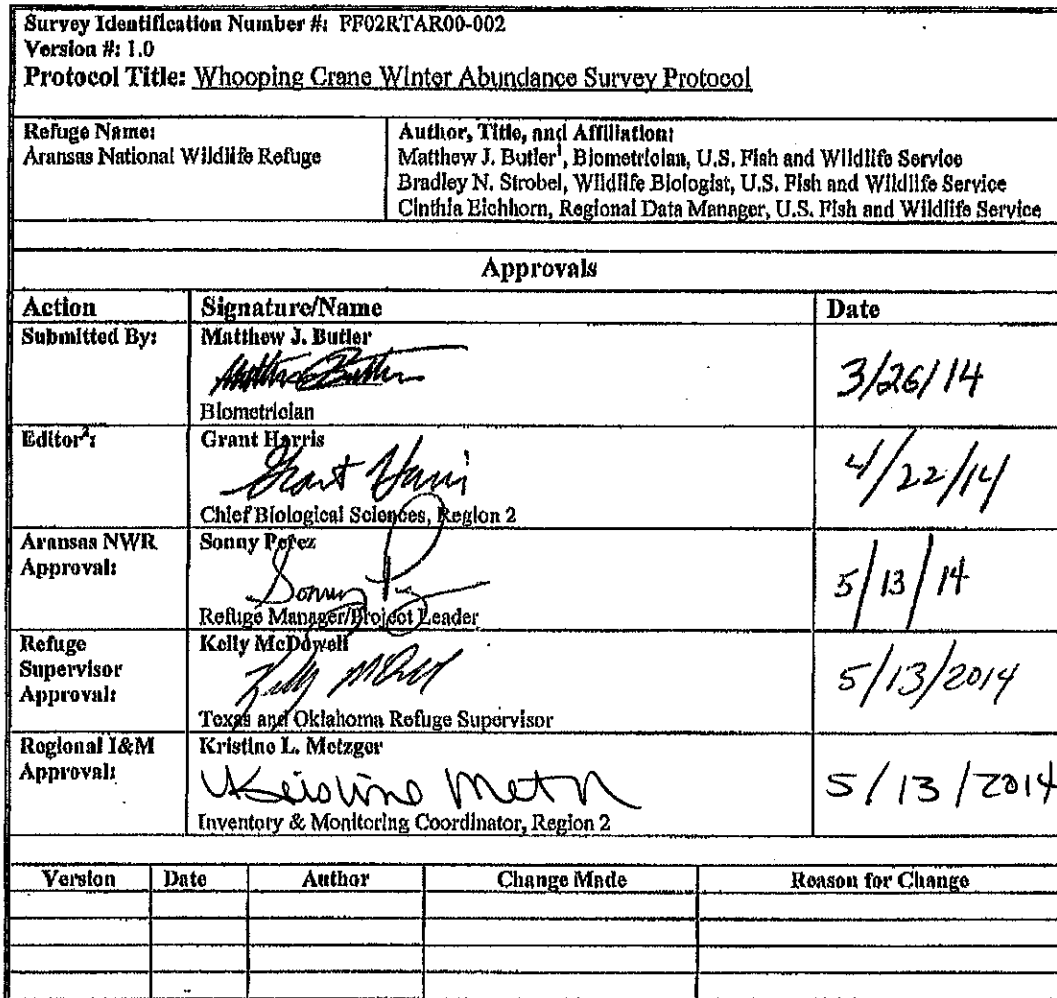 Survey Identification Number #: FF02RTAR00-002
Version #: 1.0
Protocol Title: Whooping Crane Winter Abundance Survey Protocol
Refuge Name:
Aransas National Wildlife Refuge
Author, Title, and Affiliation:
Matthew J. Butler¹, Biometrician, U.S. Fish and Wildlife Service
Bradley N. Strobel, Wildlife Biologist, U.S. Fish and Wildlife Service
Cinthia Eichhorn, Regional Data Manager, U.S. Fish and Wildlife Service
Approvals
Action Signature/Name Date
Submitted By: Matthew J. Butler
Matthew Butler 3/26/14
Biometrician
Editor²: Grant Harris
Grant Harris 4/22/14
Chief Biological Sciences, Region 2
Aransas NWR Approval: Sonny Perez
Sonny P 5/13/14
Refuge Manager/Project Leader
Refuge Supervisor Approval: Kelly McDowell
Kelly McD 5/13/2014
Texas and Oklahoma Refuge Supervisor
Regional I&M Approval: Kristine L. Metzger
Kristine Metz 5/13/2014
Inventory & Monitoring Coordinator, Region 2
Version Date Author Change Made Reason for Change